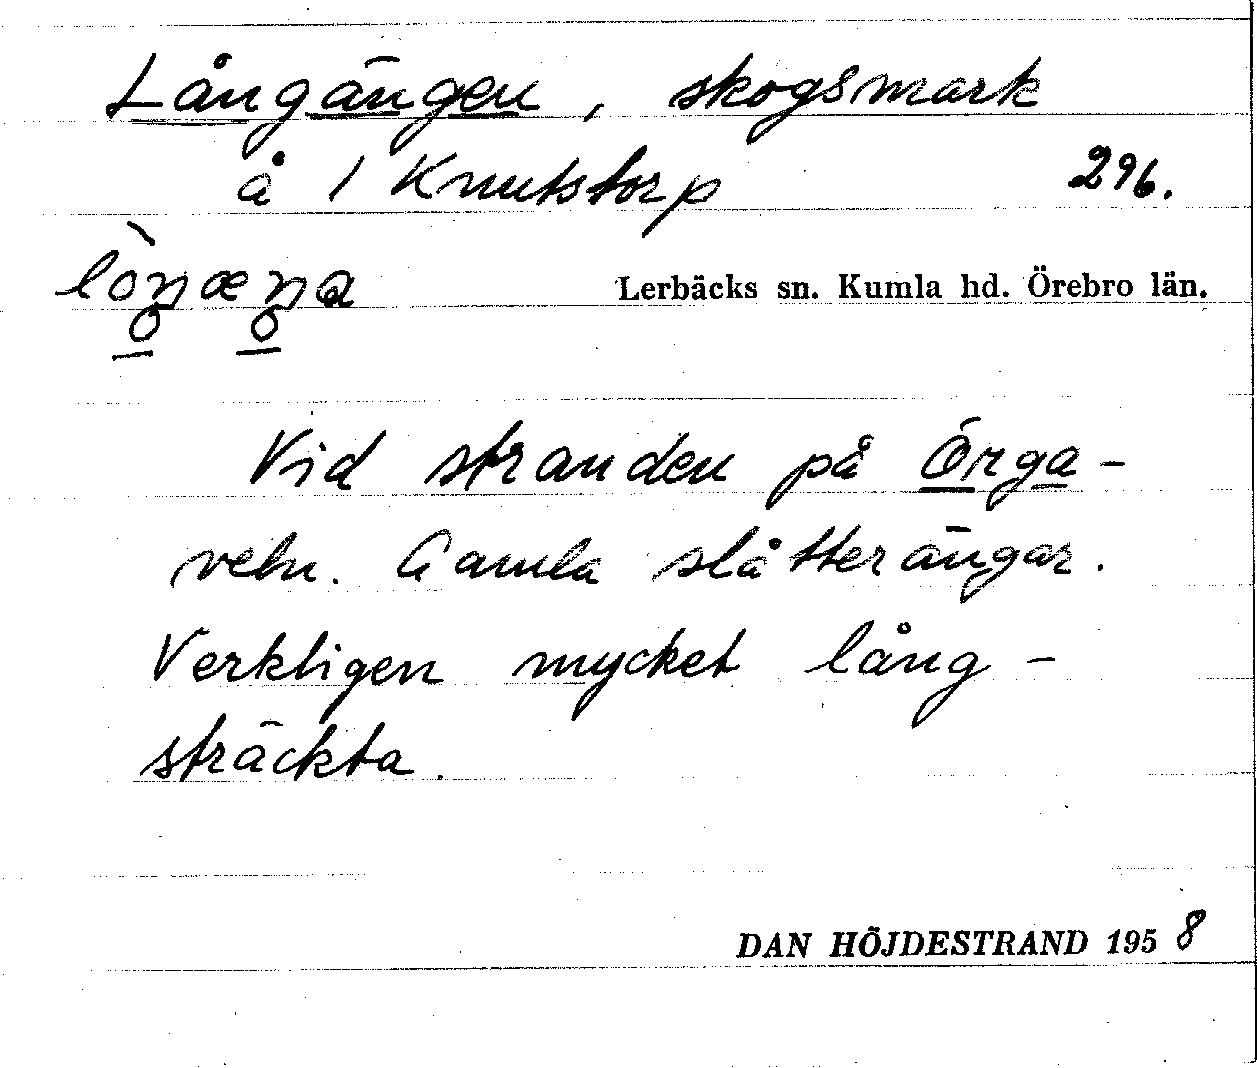 Långängen, skogsmark
å 1 Knutstorp 296.
lòŋæŋa
Lerbäcks sn. Kumla hd. Örebro län.
Vid stranden på Örga-
veln. Gamla slåtterängar.
Verkligen mycket lång-
sträckta.
DAN HÖJDESTRAND 1958